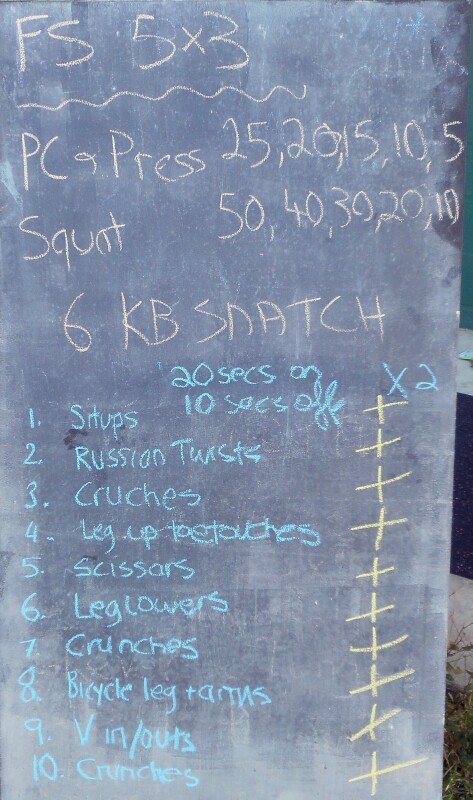 FS 5x3
PC & Press 25,20,15,10,5
Squat 50,40,30,20,10
6 KB SNATCH
20 secs on X2
10 secs off
1. Situps
2. Russian Twists
3. Cruches
4. Leg up toetouches
5. Scissors
6. Leg Lowers
7. Crunches
8. Bicycle leg + arms
9. V in/outs
10. Crunches